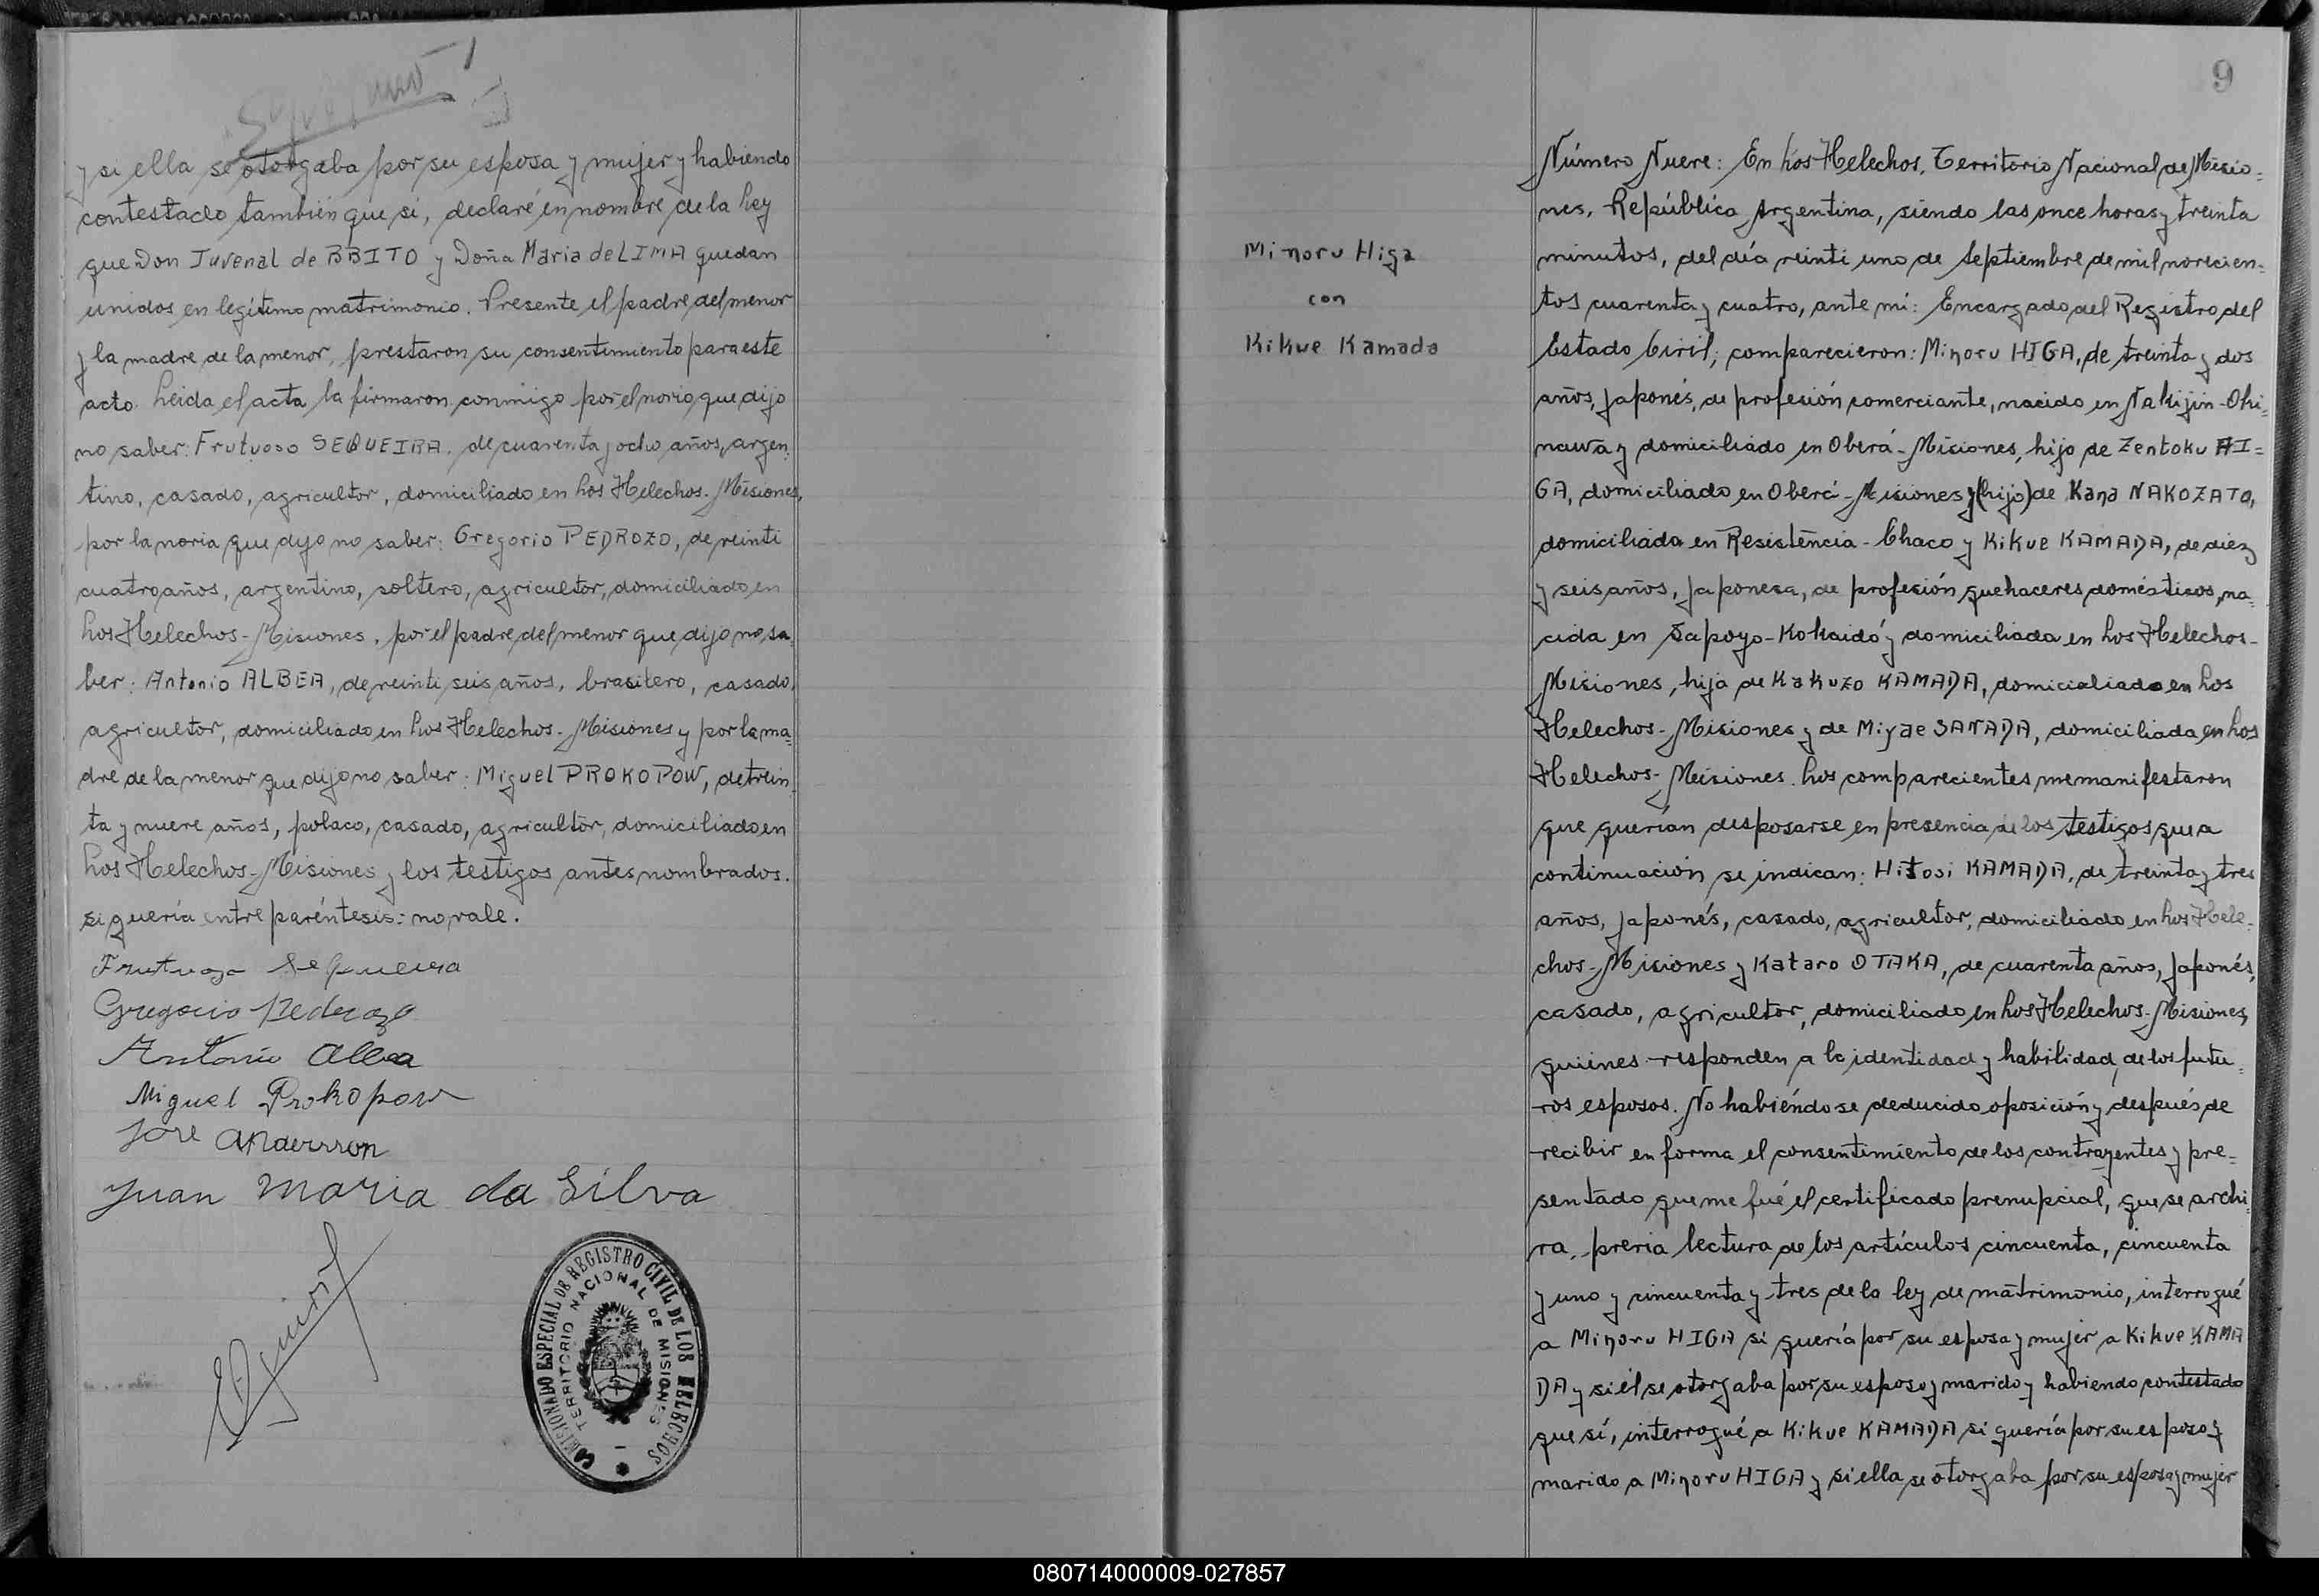 y si ella se otorgaba por su esposa y mujer y habiendo
contestado también que sí, declaré en nombre de la Ley
que Don Juvenal de BBITO y Doña Maria de LIMA quedan
unidos en legítimo matrimonio. Presente el padre del menor
y la madre de la menor, prestaron su consentimiento para este
acto. Leida el acta la firmaron conmigo por el novio que dijo
no saber: Frutuoso SEQUEIRA, de cuarenta y ocho años, argen-
tino, casado, agricultor, domiciliado en Los Helechos-Misiones,
por la novia que dijo no saber: Gregorio PEDROZO, de veinti
cuatro años, argentino, soltero, agricultor, domiciliado en
Los Helechos-Misiones, por el padre del menor que dijo no sa-
ber: Antonio ALBEA, de veinti seis años, brasilero, casado,
agricultor, domiciliado en Los Helechos-Misiones y por la ma-
dre de la menor que dijo no saber: Miguel PROKOPOW, de trein-
ta y nueve años, polaco, casado, agricultor, domiciliado en
Los Helechos-Misiones y los testigos antes nombrados.
si quería entre paréntesis: no vale.
Frutuozo Sequeira
Gregorio Pedrozo
Antonio Albea
Miguel Prokopow
Jose Anderrson
Juan Maria da Silva
COMISIONADO ESPECIAL DE REGISTRO CIVIL DE LOS HELECHOS
TERRITORIO NACIONAL DE MISIONES
9
Minoru Higa
con
Kikue Kamada
Número Nueve: En Los Helechos, Territorio Nacional de Misio=
nes, República Argentina, siendo las once horas y treinta
minutos, del día veinti uno de Septiembre de mil novecien=
tos cuarenta y cuatro, ante mí: Encargado del Registro del
Estado Civil; comparecieron: Minoru HIGA, de treinta y dos
años, japonés, de profesión comerciante, nacido en Nakijin-Oki=
nawa y domiciliado en Oberá-Misiones, hijo de Zentoku HI=
GA, domiciliado en Oberá-Misiones y (hijo) de Kana NAKOZATO,
domiciliada en Resistencia-Chaco y Kikue KAMADA, de diez
y seis años, japonesa, de profesión quehaceres domésticos, na=
cida en Sapoyo-Kokaidó y domiciliada en Los Helechos-
Misiones, hija de Kakuzo KAMADA, domicialiado en Los
Helechos-Misiones y de Miyae SANADA, domiciliada en Los
Helechos-Misiones. Los comparecientes me manifestaron
que querían desposarse en presencia de los testigos que a
continuación se indican: Hitosi KAMADA, de treinta y tres
años, japonés, casado, agricultor, domiciliado en Los Hele-
chos-Misiones y Kataro OTAKA, de cuarenta años, japonés,
casado, agricultor, domiciliado en Los Helechos-Misiones,
quiénes responden a la identidad y habilidad de los futu=
ros esposos. No habiéndose deducido oposición y después de
recibir en forma el consentimiento de los contrayentes y pre=
sentado que me fué el certificado prenupcial, que se archi=
va, previa lectura de los artículos cincuenta, cincuenta
y uno y cincuenta y tres de la ley de matrimonio, interrogué
a Minoru HIGA si quería por su esposa y mujer a Kikue KAMA
DA y si él se otorgaba por su esposo y marido y habiendo contestado
que sí, interrogué a Kikue KAMADA si quería por su esposo y
marido a Minoru HIGA y si ella se otorgaba por su esposa y mujer
080714000009-027857